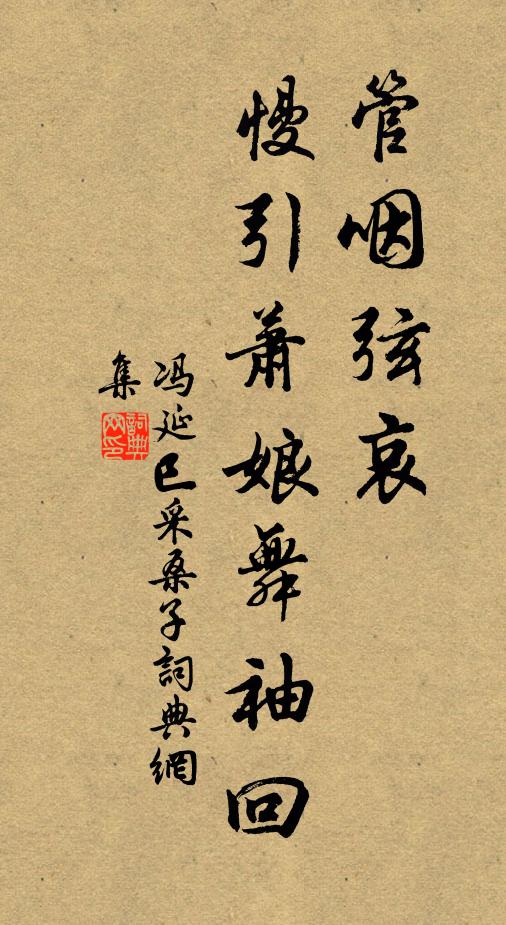 管咽弦哀
慢引萧娘舞袖回
冯延巳采桑子詞典網
集
詞典
网印